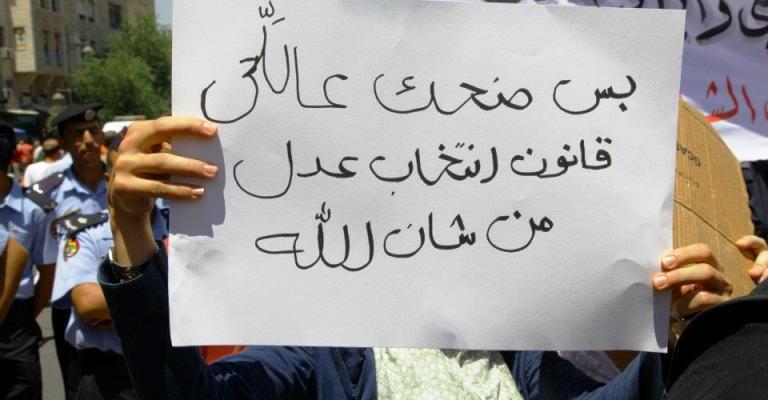 بس ضحك عاللّحى
قانون انتخاب عدل
من شان الله